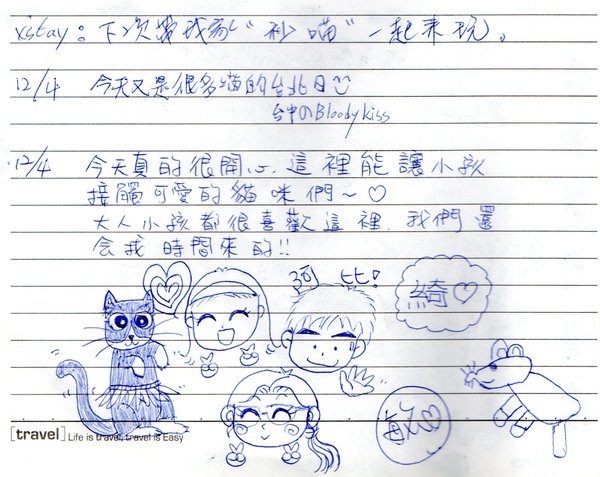 xstay：下次帶我家“秒喵”一起來玩。
12/4 今天又是很多喵的台北日
台中のBloody kiss
12/4 今天真的很開心.這裡能讓小孩
接觸可愛的貓咪們~♡
大人小孩都很喜歡這裡.我們還
会找時間來的!!
阿比!
綺♡
敏♡
[travel] Life is travel, travel is Easy